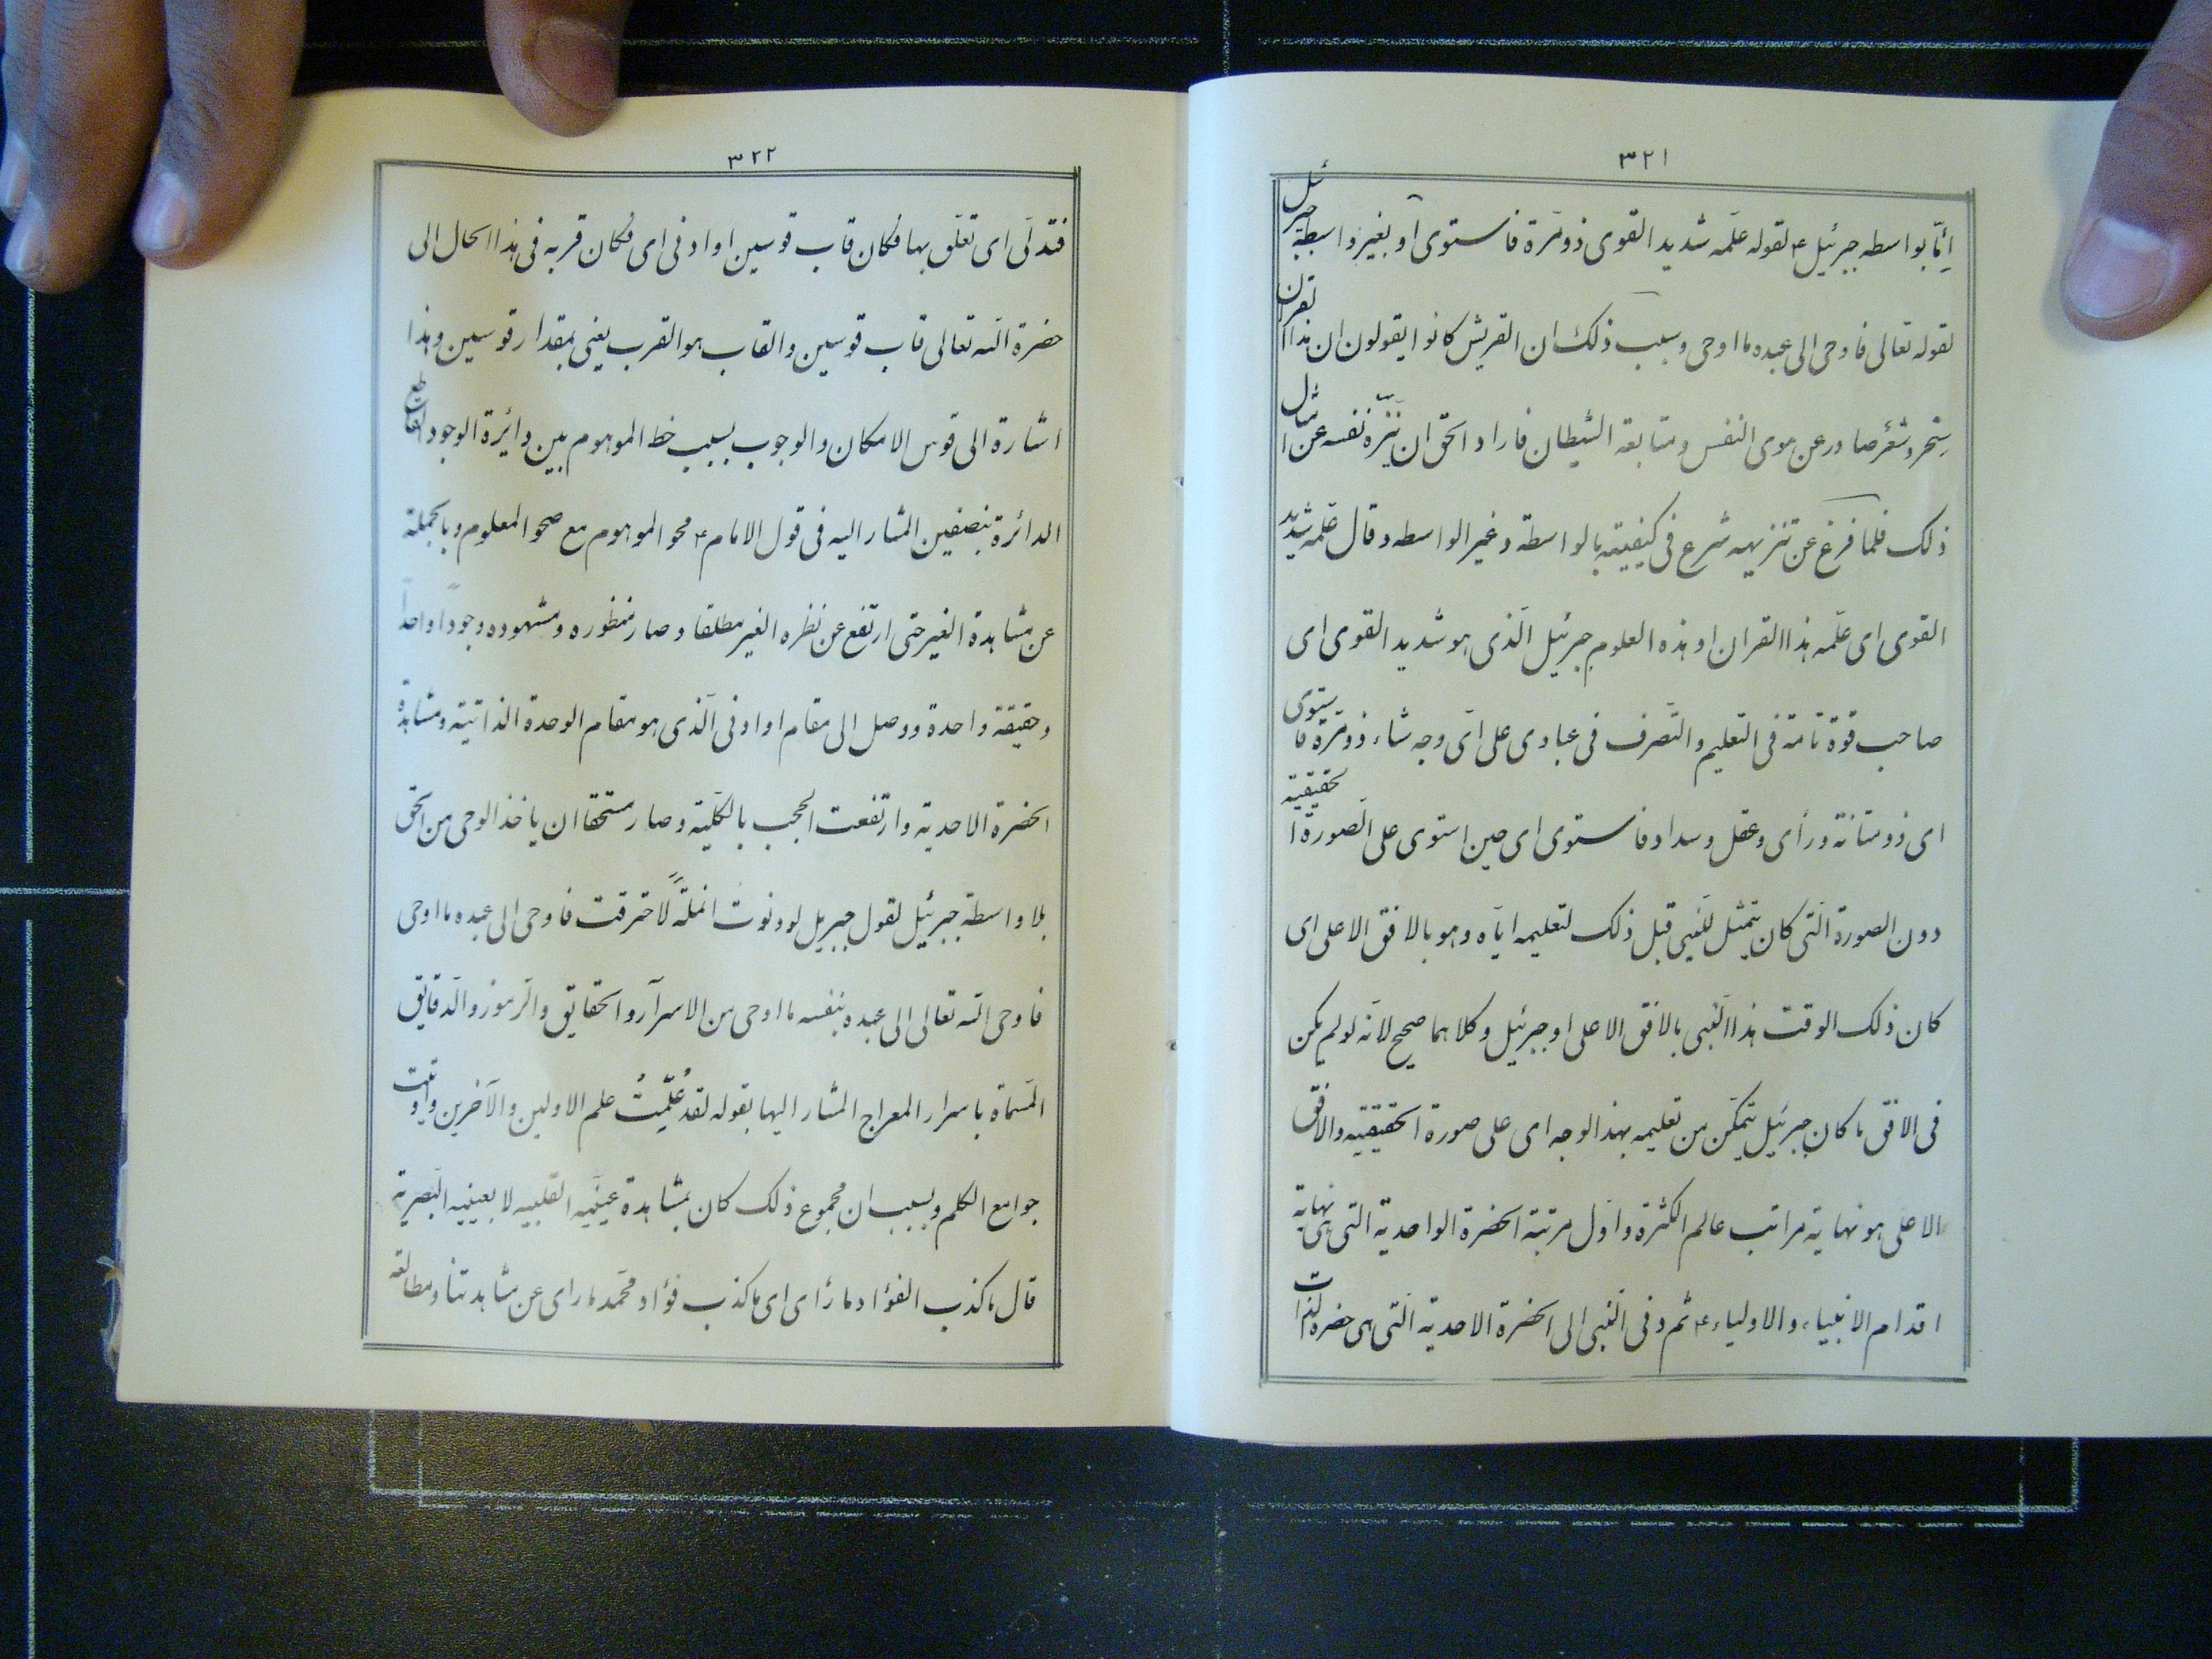 ٣٢١
اِمّا بواسطه جبرئیل ع لقوله علّمه شدید القوی ذو مرّة فاستوی او بغیر واسطة جبرئیل
لقوله تعالی فاوحی الی عبده ما اوحی وسبب ذلک ان القریش کانوا یقولون ان هذا القرآن
سِحر وشعر صادر عن هوی النفس ومتابعة الشیطان فاراد الحق ان ینزّه نفسه عن امثال
ذلک فلما فرغ عن تنزیهه شرع فی کیفیته بالواسطة وغیر الواسطه وقال علّمه شدید
القوی ای علّمه هذا القران او هذه العلوم جبرئیل الّذی هو شدید القوی ای
صاحب قوّة تامّة فی التعلیم والتّصرف فی عبادی علی ایّ وجه شاء ذو مرّة فاستوی
ای ذو متانة ورأی وعقل وسداد فاستوی ای حین استوی علی الصورة الحقیقیة
دون الصورة الّتی کان یتمثل للنبی قبل ذلک لتعلیمه ایّاه وهو بالافق الاعلی ای
کان ذلک الوقت هذا النّبی بالافق الاعلی او جبرئیل وکلاهما صحیح لانّه لو لم یکن
فی الافق ما کان جبرئیل یتمکّن من تعلیمه بهذا الوجه ای علی صورة الحقیقیه والافق
الاعلی هو نهایة مراتب عالم الکثرة واوّل مرتبة الحضرة الواحدیة التی هی نهایة
اقدام الانبیاء والاولیاء ع ثم دنی النّبی الی الحضرة الاحدیة الّتی هی حضرة الذات
٣٢٢
فتدلّی ای تعلّق بها فکان قاب قوسین او ادنی ای فکان قربه فی هذا الحال الی
حضرة الله تعالی قاب قوسین والقاب هو القرب یعنی بمقدار قوسین وهذا
اشارة الی قوس الامکان والوجوب بسبب خط الموهوم بین دائرة الوجود القاطع
الدائرة بنصفین المشار الیه فی قول الامام ع محو الموهوم مع صحو المعلوم وبالجملة
عن مشاهدة الغیر حتی ارتفع عن نظره الغیر مطلقا وصار منظوره ومشهوده وجودًا واحداً
وحقیقة واحدة ووصل الی مقام او ادنی الّذی هو مقام الوحدة الذاتیّة ومشاهدة
الحضرة الاحدیة وارتفعت الحجب بالکلّیة وصار مستحقا ان یاخذ الوحی من الحق
بلا واسطة جبرئیل لقول جبریل لو دنوت انملةً لاحترقت فاوحی الی عبده ما اوحی
فاوحی الله تعالی الی عبده بنفسه ما اوحی من الاسرآر والحقایق والرّموز والدّقایق
المسمّاة باسرار المعراج المشار الیها بقوله لقد عُلّمِتُ علم الاولین والآخرین واوتیت
جوامع الکلم وبسبب ان مجموع ذلک کان بمشاهدة عینیه القلبیه لا بعینیه البصریة
قال ما کذب الفؤاد ما رأی ای ما کذب فؤاد محمّد ما رای عن مشاهدتنا ومطالعة